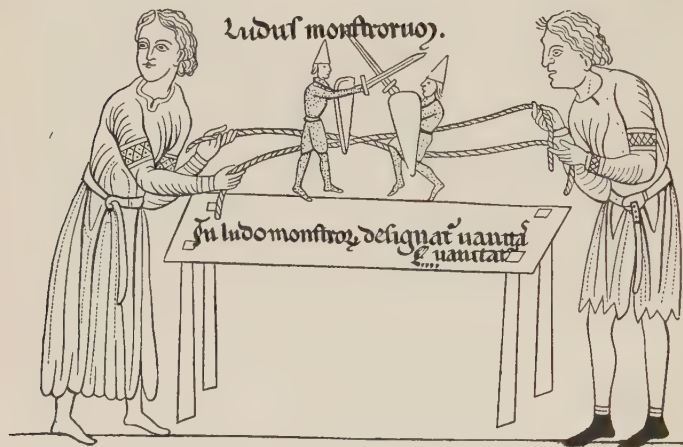 Ludus monstroruꝫ.
In ludo monstroꝝ designat᷑ uanita᷑
uanitat᷑